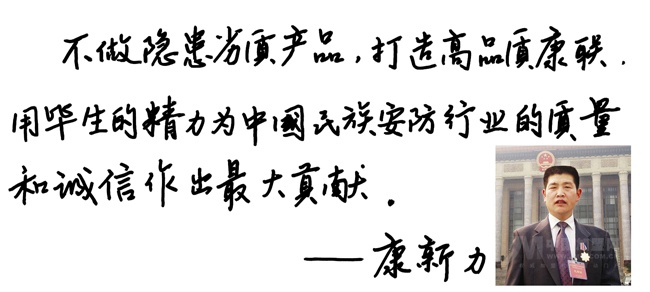 不做隐患劣质产品，打造高品质康联.
用毕生的精力为中國民族安防行业的质量
和诚信作出最大贡献.
——康新力